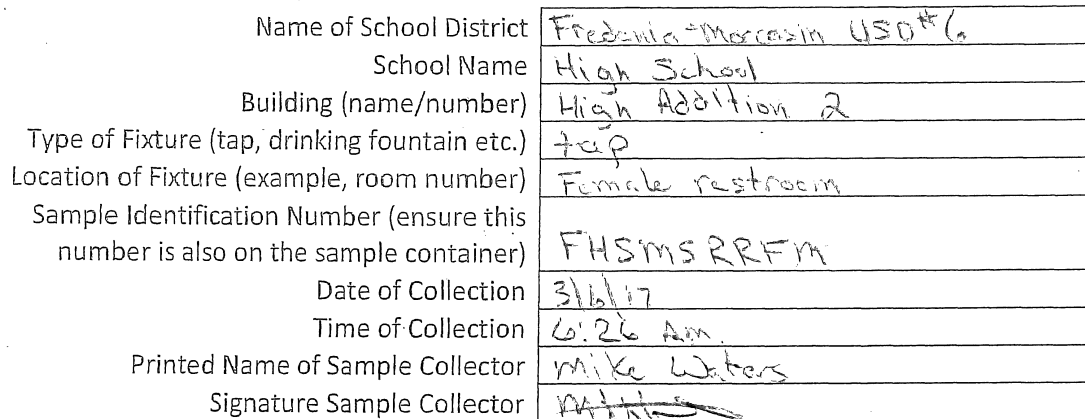 Name of School District Fredonia-Moccasin USD #6
School Name High School
Building (name/number) High Addition 2
Type of Fixture (tap, drinking fountain etc.) tap
Location of Fixture (example, room number) Female restroom
Sample Identification Number (ensure this
number is also on the sample container) FHSMSRRFM
Date of Collection 3/6/17
Time of Collection 6:26 Am
Printed Name of Sample Collector Mike Waters
Signature Sample Collector